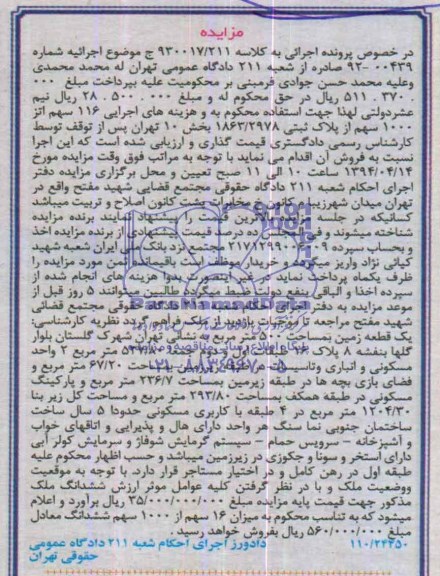 مزایده
در خصوص پرونده اجرائی به کلاسه ۹۳۰۰۱۷/۲۱۱ ج موضوع اجرائیه شماره
۰۰۴۳۹-۹۲ صادره از شعبه ۲۱۱ دادگاه عمومی تهران له محمد محمدی
وعلیه محمد حسن جوادی فرمینی بر محکومیت علیه بپرداخت مبلغ ۰۰۰
. ۳۷۰ . ۵۱۱ ریال در حق محکوم له و مبلغ ۰۰۰ . ۵۰۰ . ۲۸ ریال نیم
عشردولتی لهذا جهت استفاده محکوم به و هزینه های اجرایی ۱۱۶ سهم از
۱۰۰۰ سهم از پلاک ثبتی ۱۸۶۳/۲۹۷۸ بخش ۱۰ تهران پس از توقف توسط
کارشناس رسمی دادگستری قیمت گذاری و ارزیابی شده است که این اجرا
نسبت به فروش آن اقدام می نماید با توجه به مراتب فوق وقت مزایده مورخ
۱۳۹۴/۰۴/۱۴ ساعت ۱۰ الی ۱۱ صبح تعیین و محل برگزاری مزایده دفتر
اجرای احکام شعبه ۲۱۱ دادگاه حقوقی مجتمع قضایی شهید مفتح واقع در
تهران میدان شهرزیبا کانون مخابرات پشت کانون اصلاح و تربیت میباشد
کسانیکه در جلسه بالاترین قیمت را پیشنهاد نمایند برنده مزایده
شناخته میشوند و فی المجلس ده درصد قیمت پیشنهادی از برنده مزایده اخذ
و بحساب سپرده مجتمع نزد بانک ملی ایران شعبه شهید
کیائی نژاد واریز میگردد و خریدار موظف است باقیمانده ثمن مورد مزایده را
ظرف یکماه پرداخت نماید در غیر اینصورت بدوا هزینه های انجام شده از
سپرده اخذ و الباقی بنفع دولت ضبط میگردد طالبین میتوانند ۵ روز قبل از
موعد مزایده به دفتر اجرای احکام دادگاه حقوقی مجتمع قضائی
شهید مفتح مراجعه تا ترتیبات بازدید از ملک فراهم گردد نظریه کارشناسی:
یک قطعه زمین بمساحت متر مربع به نشانی تهران شهرک گلستان بلوار
گلها بنفشه ۸ پلاک طبقات اول و دوم جمعا متر مربع ۲ واحد
مسکونی و انباری وتاسیسات در طبقه زیرزمین بمساحت ۶۷/۲۰ متر مربع و
فضای بازی بچه ها در طبقه زیرزمین بمساحت ۲۳۶/۷ متر مربع و پارکینگ
مسکونی در طبقه همکف بمساحت ۲۹۳/۸۰ متر مربع و مساحت کل زیر بنا
۱۲۰۴/۳۰ متر مربع در ۴ طبقه با کاربری مسکونی حدودا ۵ سال ساخت
ساختمان جنوبی نما سنگ هر واحد دارای هال و پذیرایی و اتاقهای خواب
و آشپزخانه - سرویس حمام - سیستم گرمایش شوفاژ و سرمایش کولر آبی
دارای استخر و سونا و جکوزی در زیرزمین میباشد و حسب اظهار محکوم علیه
طبقه اول در رهن کامل و در اختیار مستاجر قرار دارد. با توجه به موقعیت
ووضعیت ملک و با در نظر گرفتن کلیه عوامل موثر ارزش ششدانگ ملک
مذکور جهت قیمت پایه مزایده مبلغ ۳۵/۰۰۰/۰۰۰/۰۰۰ ریال برآورد و اعلام
میشود که به تناسب محکوم به میزان ۱۶ سهم از ۱۰۰۰ سهم ششدانگ معادل
مبلغ ۵۶۰/۰۰۰/۰۰۰ ریال بفروش خواهد رسید.
۱۱۰/۲۴۴۵۰ دادورز اجرای احکام شعبه ۲۱۱ دادگاه عمومی
حقوقی تهران